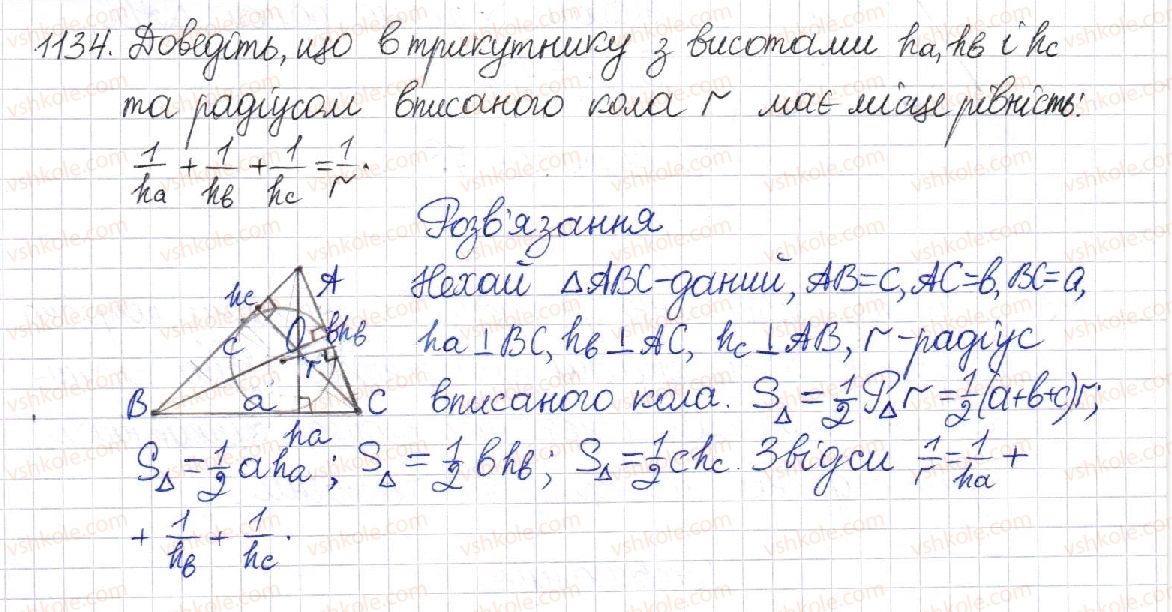 1134. Доведіть, що в трикутнику з висотами ha, hв і hc
та радіусом вписаного кола r має місце рівність:
1/ha + 1/hв + 1/hc = 1/r.
Розв'язання
A
hc
O
в hв
c
r
B
a
C
ha
Нехай △ABC-даний, AB=c, AC=в, BC=a,
ha⊥BC, hв⊥AC, hc⊥AB, r-радіус
вписаного кола. S△=1/2 P△r=1/2(a+в+c)r;
S△=1/2 aha; S△=1/2 вhв; S△=1/2 chc. Звідси 1/r=1/ha+
+ 1/hв + 1/hc.
vshkole.com